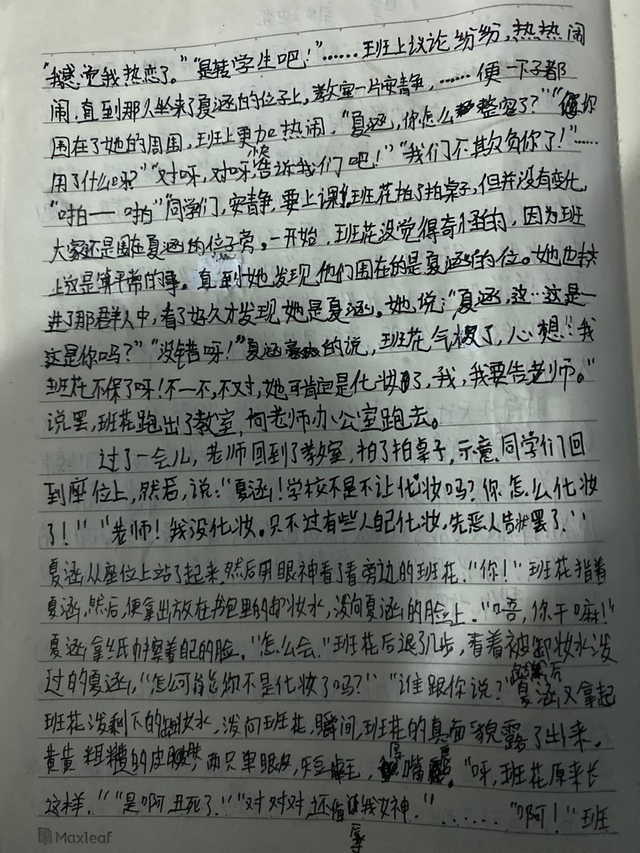 "我感觉我热恋了。""是转学生吧!"……班上议论纷纷,热热闹
闹,直到那人坐在了夏涵的位子上,教室一片安静,……便一下子都
围在了她的周围,班上更加热闹,"夏涵,你怎么整容了?""你
用了什么呀?""对呀,对呀,快告诉我们吧!""我们不欺负你了!"……
"啪——啪""同学们,安静,要上课,班花拍了拍桌子,但并没有变化,
大家还是围在夏涵的位子旁。一开始,班花没觉得奇怪的,因为班
上这是算平常的事。直到她发现他们围在的是夏涵的位。她也挤
进了那群人中,看了好久才发现她是夏涵。她说:"夏涵,这…这是一
这是你吗?""没错呀!"夏涵的说,班花气极了,心想:"我
班花不保了呀!不一不,不对,她可肯定是化妆了,我,我要告老师。"
说罢,班花跑出了教室,向老师办公室跑去。
过了一会儿,老师回到了教室,拍了拍桌子,示意同学们回
到座位上,然后,说:"夏涵!学校不是不让化妆吗?你怎么化妆
了!""老师!我没化妆。只不过有些人自己化妆,先恶人告状罢了.''
夏涵从座位上站了起来,然后用眼神看了看旁边的班花."你!"班花指着
夏涵,然后,便拿出放在书包里的卸妆水,泼向夏涵的脸上."唔,你干嘛!"
夏涵拿纸巾擦着自己的脸。"怎么会."班花后退了几步,看着被卸妆水泼
过的夏涵,"怎么可能你不是化妆了吗?""谁跟你说?"然后夏涵又拿起
班花泼剩下的卸妆水,泼向班花,瞬间,班花的真面貌露了出来,
黄黄粗糙的皮肤,两只单眼皮,厚嘴唇。"呀,班花原来长
这样.""是啊,丑死了.""对对对,还值得我女神."……"啊!"班
Maxleaf